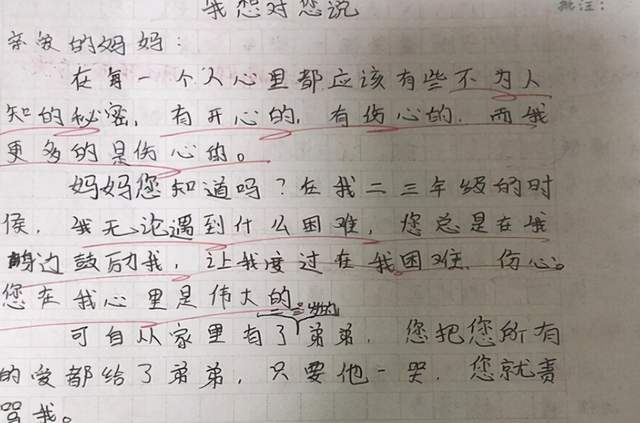 我想对您说
批注：
亲爱的妈妈：
在每一个人心里都应该有些不为人
知的秘密，有开心的，有伤心的，而我
更多的是伤心的。
妈妈您知道吗？在我二三年级的时
候，我无论遇到什么困难，您总是在我
身边鼓励我，让我度过在我困难、伤心。
您在我心里是伟大的。
可自从家里有了弟弟，您把您所有
的爱都给了弟弟，只要他一哭，您就责
骂我。